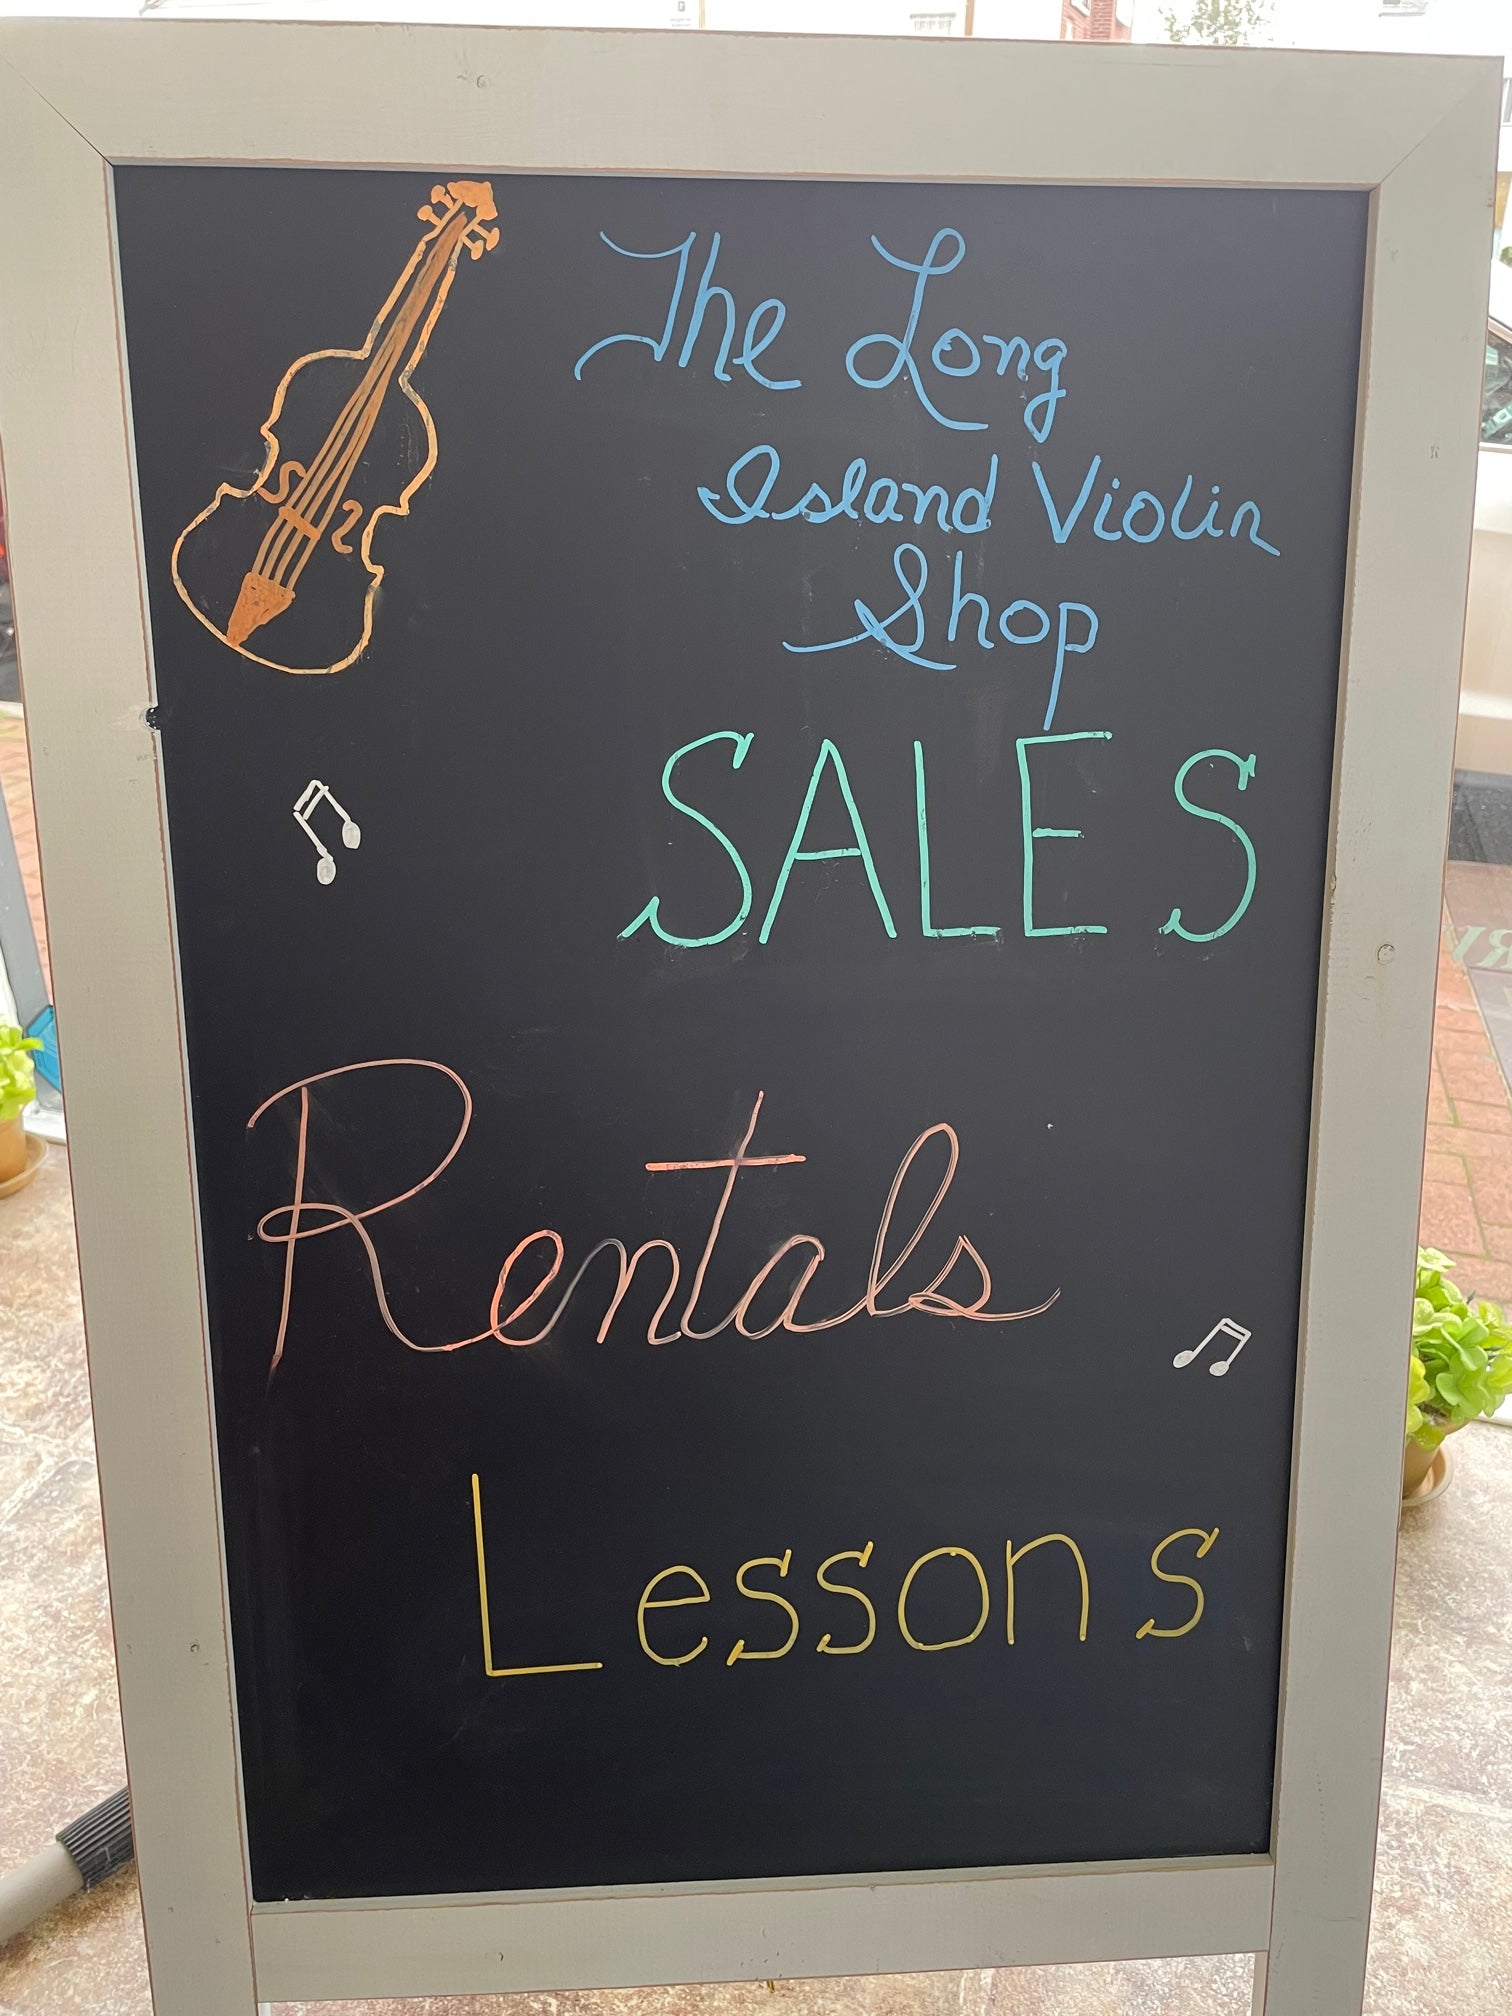 The Long
Island Violin
Shop
SALES
Rentals
Lessons